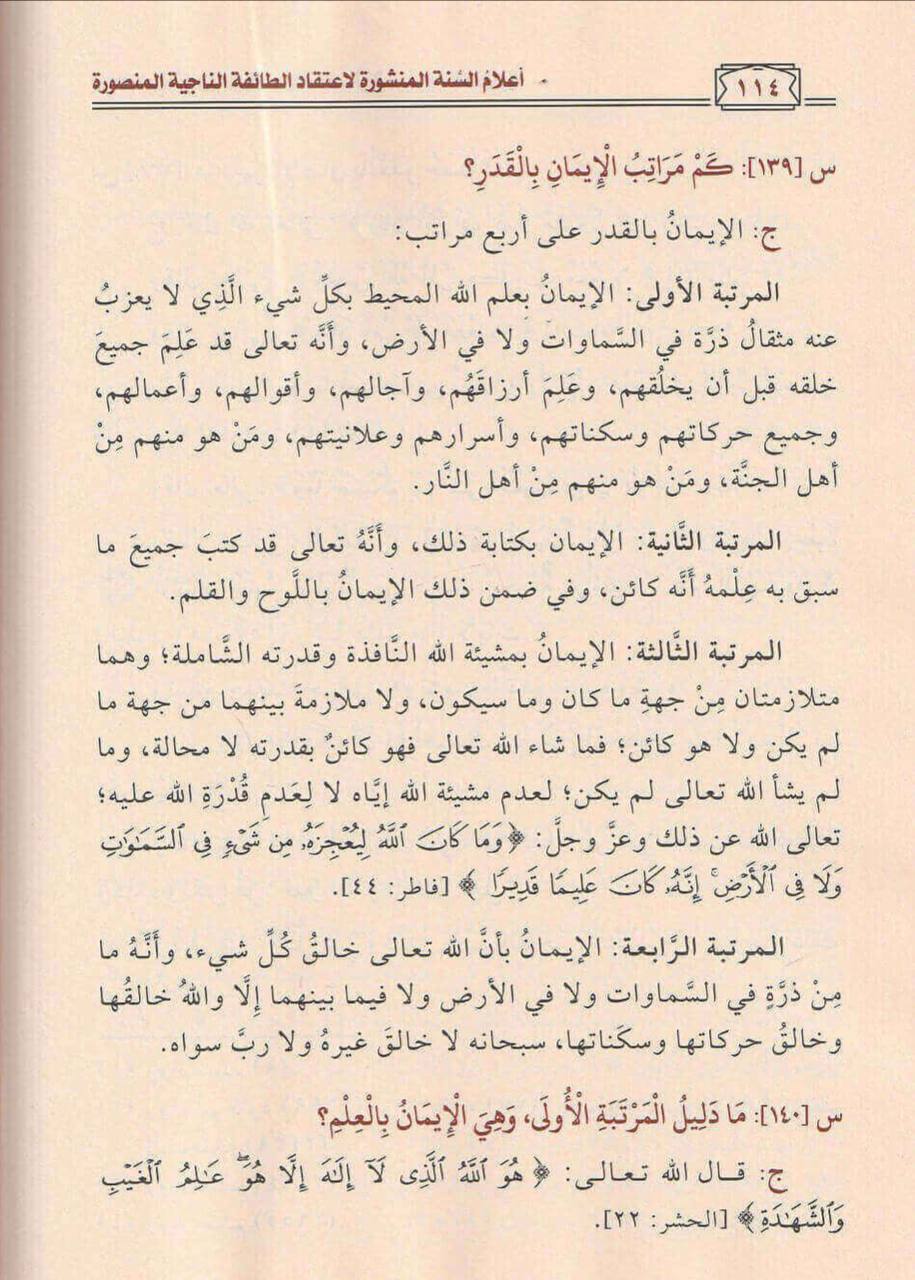 ١١٤
أعلام السُّنة المنشورة لاعتقاد الطائفة الناجية المنصورة
س [١٣٩]: كَمْ مَرَاتِبُ الْإِيمَانِ بِالْقَدَرِ؟
ج: الإيمانُ بالقدر على أربع مراتب:
المرتبة الأولى: الإيمانُ بعلم الله المحيط بكلِّ شيء الَّذِي لا يعزبُ
عنه مثقالُ ذرَّة في السَّماوات ولا في الأرض، وأنَّه تعالى قد عَلِمَ جميعَ
خلقه قبل أن يخلُقهم، وعَلِمَ أرزاقَهُم، وآجالهم، وأقوالهم، وأعمالهم،
وجميع حركاتهم وسكناتهم، وأسرارهم وعلانيتهم، ومَنْ هو منهم مِنْ
أهل الجنَّة، ومَنْ هو منهم مِنْ أهل النَّار.
المرتبة الثَّانية: الإيمان بكتابة ذلك، وأَنَّهُ تعالى قد كتبَ جميعَ ما
سبق به عِلْمهُ أنَّه كائن، وفي ضمن ذلك الإيمانُ باللَّوح والقلم.
المرتبة الثَّالثة: الإيمانُ بمشيئة الله النَّافذة وقدرته الشَّاملة؛ وهما
متلازمتان مِنْ جهةِ ما كان وما سيكون، ولا ملازمةَ بينهما من جهة ما
لم يكن ولا هو كائن؛ فما شاء الله تعالى فهو كائنٌ بقدرته لا محالة، وما
لم يشأ الله تعالى لم يكن؛ لعدم مشيئة الله إيَّاه لا لِعَدمِ قُدْرَةِ الله عليه؛
تعالى الله عن ذلك وعزَّ وجلَّ: ﴿وَمَا كَانَ ٱللَّهُ لِيُعْجِزَهُۥ مِن شَىْءٍ فِى ٱلسَّمَٰوَٰتِ
وَلَا فِى ٱلْأَرْضِ ۚ إِنَّهُۥ كَانَ عَلِيمًا قَدِيرًا﴾ [فاطر: ٤٤].
المرتبة الرَّابعة: الإيمانُ بأنَّ الله تعالى خالقُ كُلِّ شيء، وأنَّهُ ما
مِنْ ذرَّةٍ في السَّماوات ولا في الأرض ولا فيما بينهما إِلَّا واللهُ خالقُها
وخالقُ حركاتها وسكَناتها، سبحانه لا خالقَ غيرهُ ولا ربَّ سواه.
س [١٤٠]: مَا دَلِيلُ الْمَرْتَبَةِ الْأُولَى، وَهِيَ الْإِيمَانُ بِالْعِلْمِ؟
ج: قال الله تعالى: ﴿هُوَ ٱللَّهُ ٱلَّذِى لَآ إِلَٰهَ إِلَّا هُوَ ۖ عَٰلِمُ ٱلْغَيْبِ
وَٱلشَّهَٰدَةِ﴾ [الحشر: ٢٢].